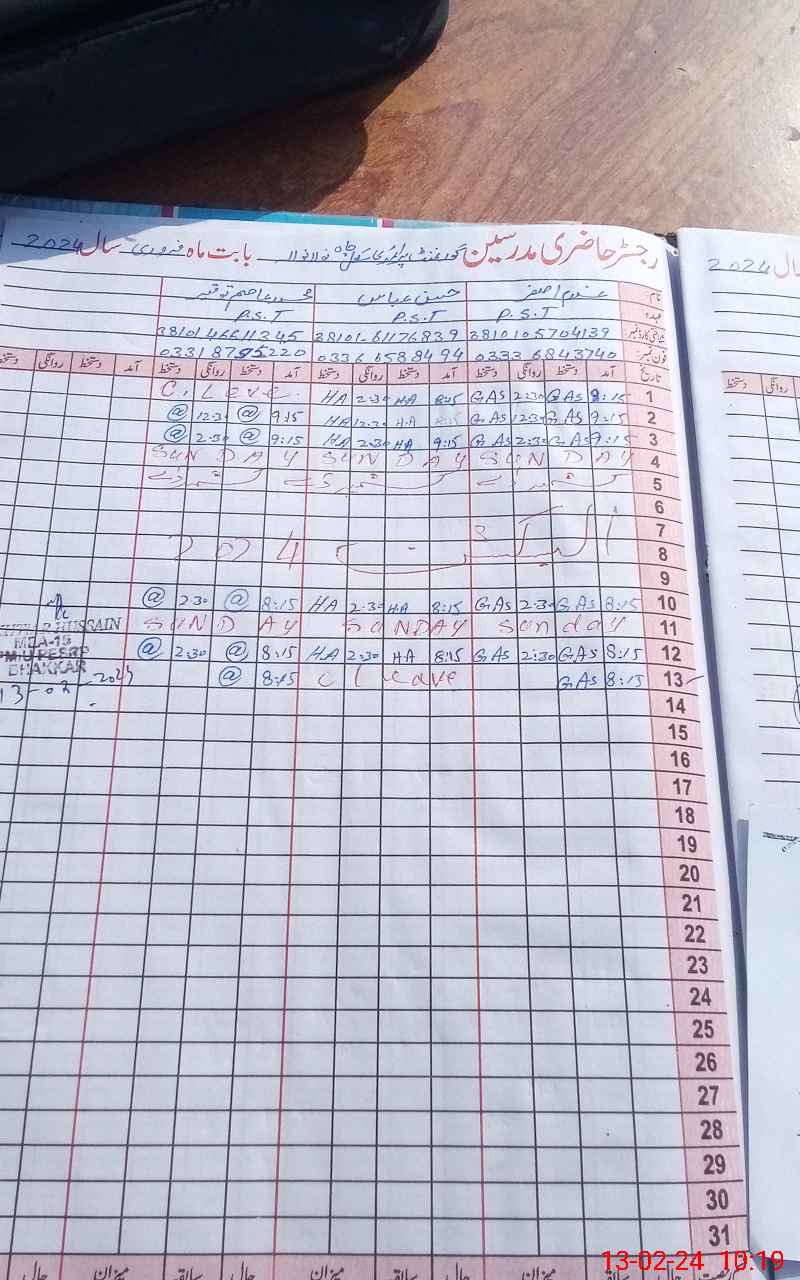 رجسٹر حاضری مدرسین گورنمنٹ پرائمری سکول بابت ماہ فروری سال 2024
نام: غلام اصغر حسن عباس محمد عاصم توقیر
عہدہ P.S.T P.S.T P.S.T
شناختی کارڈ نمبر: 3810105704139 38101-61176839 3810146611345
فون نمبر: 0333 6843740 0336 6588494 03318795220
تاریخ آمد دستخط روانگی دستخط آمد دستخط روانگی دستخط آمد دستخط روانگی دستخط آمد دستخط روانگی دستخط
1 8:15 GAS 2:30 GAS 8:15 HA 2:30 HA C. Leve.
2 9:15 GAS 12:30 GAS HA 12:30 HA 9:15 @ 12:30 @
3 9:15 GAS 2:30 GAS 9:15 HA 2:30 HA 9:15 @ 2:30 @
4 SUNDAY SUNDAY SUNDAY
5 کشمیر ڈے کشمیر ڈے کشمیر ڈے
6
7
8 الیکشن 2024
9
10 8:15 GAS 2:30 GAS 8:15 HA 2:30 HA 8:15 @ 2:30 @
11 Sunday SUNDAY SUNDAY
12 8:15 GAS 2:30 GAS 8:15 HA 2:30 HA 8:15 @ 2:30 @
13 8:15 GAS cleave 8:15 @
HUSSAIN
MEA-19
PMIU PESRP
BHAKKAR
13-02-2024
14
15
16
17
18
19
20
21
22
23
24
25
26
27
28
29
30
31
میزان سابقہ حال میزان سابقہ حال میزان
سال 2024
روانگی دستخط
13-02-24 10:19